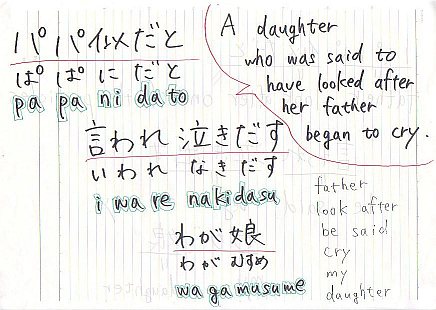 パパ似だと
ぱぱにだと
pa pa ni da to
言われ泣きだす
いわれ なきだす
i wa re nakidasu
わが娘
わが むすめ
wa ga musume
A daughter
who was said to
have looked after
her father
began to cry.
father
look after
be said
cry
my
daughter